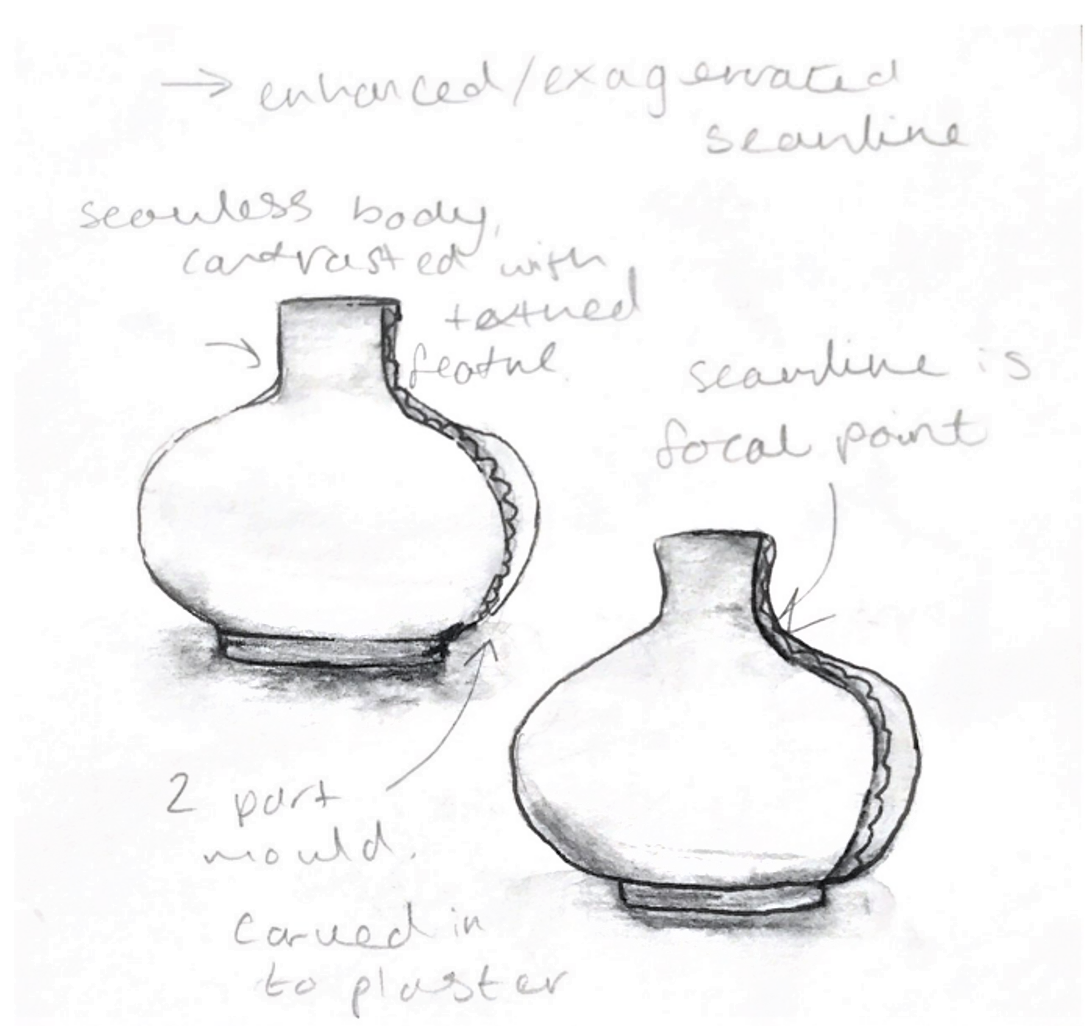 → enhanced/exagerrated
seamline
seamless body,
contrasted with
textured
feature
seamline is
focal point
2 part
mould.
Carved in
to plaster